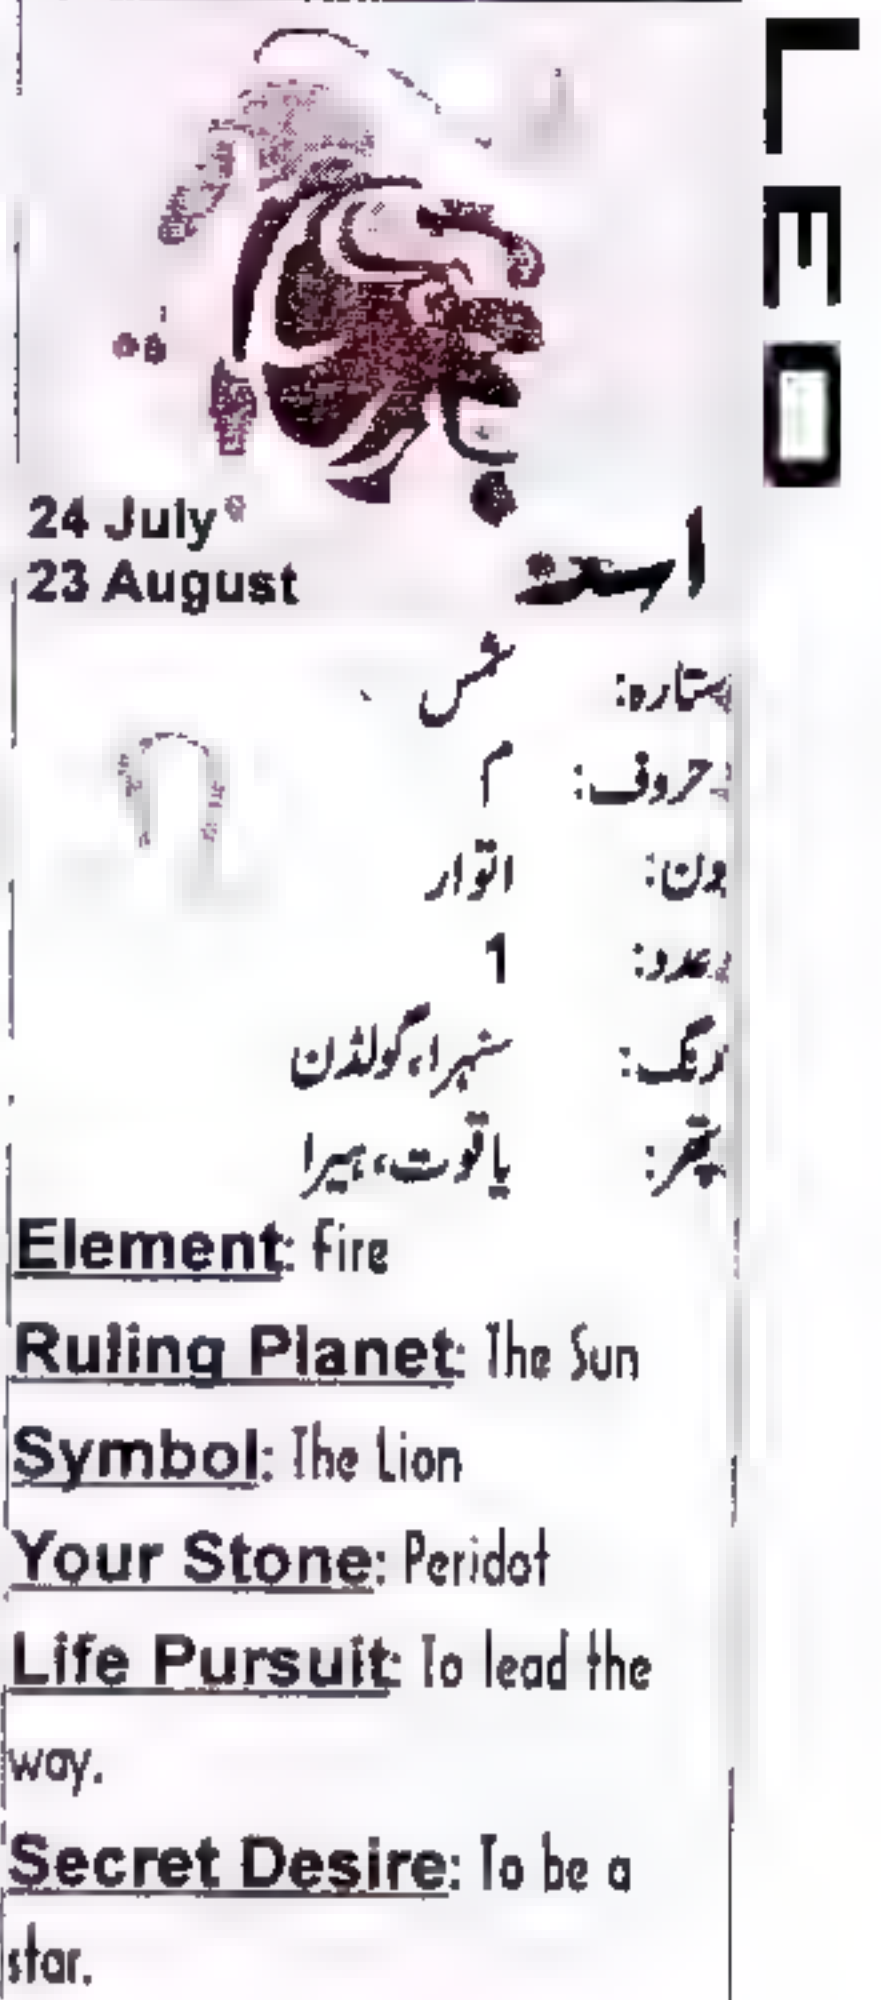 LEO
24 July
23 August
اسد
ستارہ: شمس
حروف: م
دن: اتوار
عدد: 1
رنگ: سنہرا، گولڈن
پتھر: یاقوت، ہیرا
Element: Fire
Ruling Planet: The Sun
Symbol: The Lion
Your Stone: Peridot
Life Pursuit: To lead the
way.
Secret Desire: To be a
star.